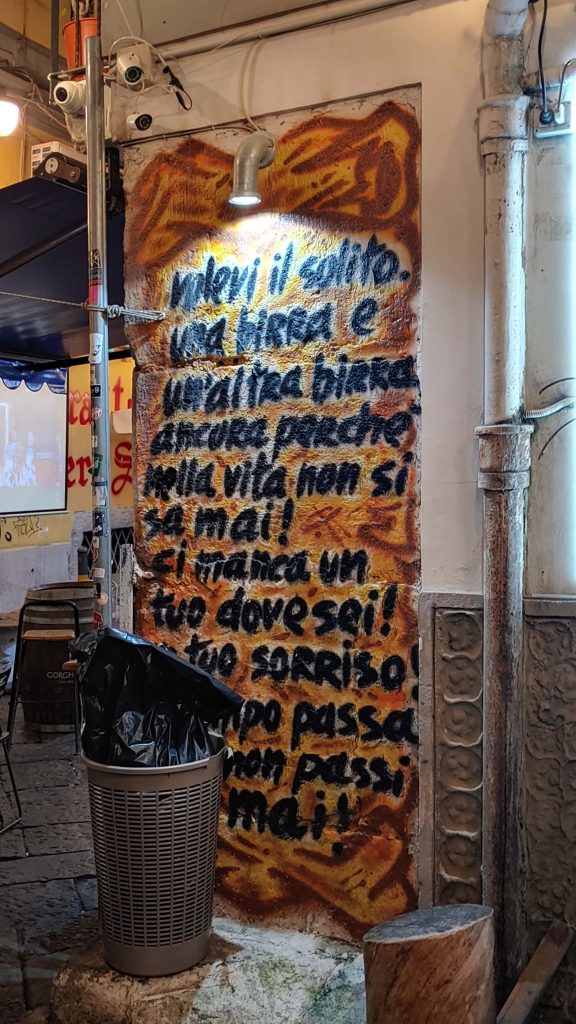 volevi il solito.
una birra e
un'altra birra
ancora perche'
nella vita non si
sa mai!
ci manca un
tuo dove sei!
tuo sorriso!
mpo passa
non passi
mai!
GORGH